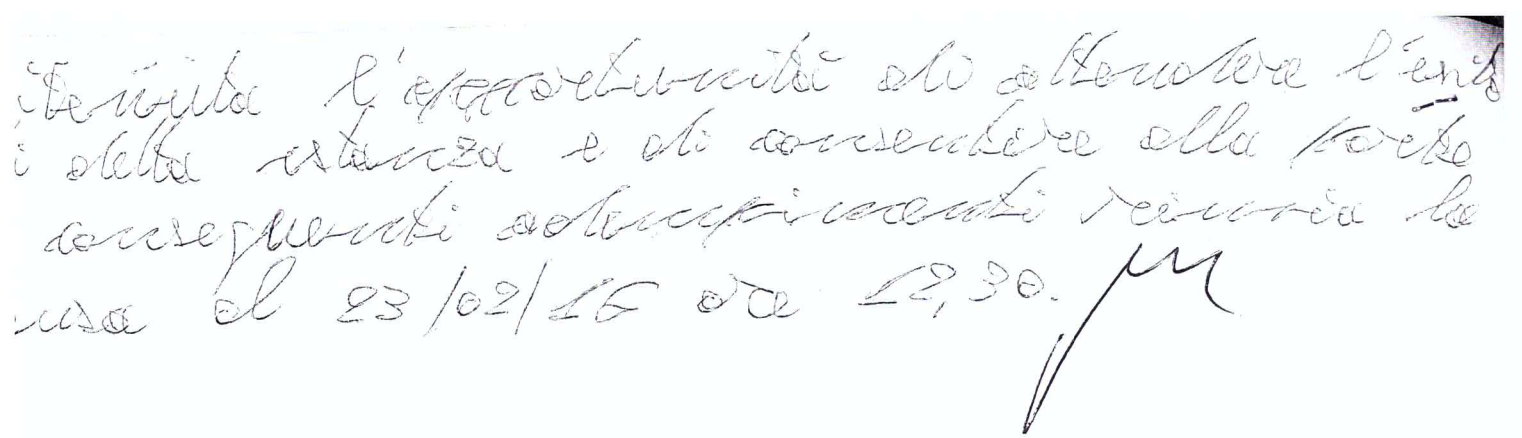 itenuta l'opportunità di attendere l'esito
i detta istanza e di consentire alla parte
conseguenti adempimenti rinvia la
usa al 23/02/16 ore 12,30.